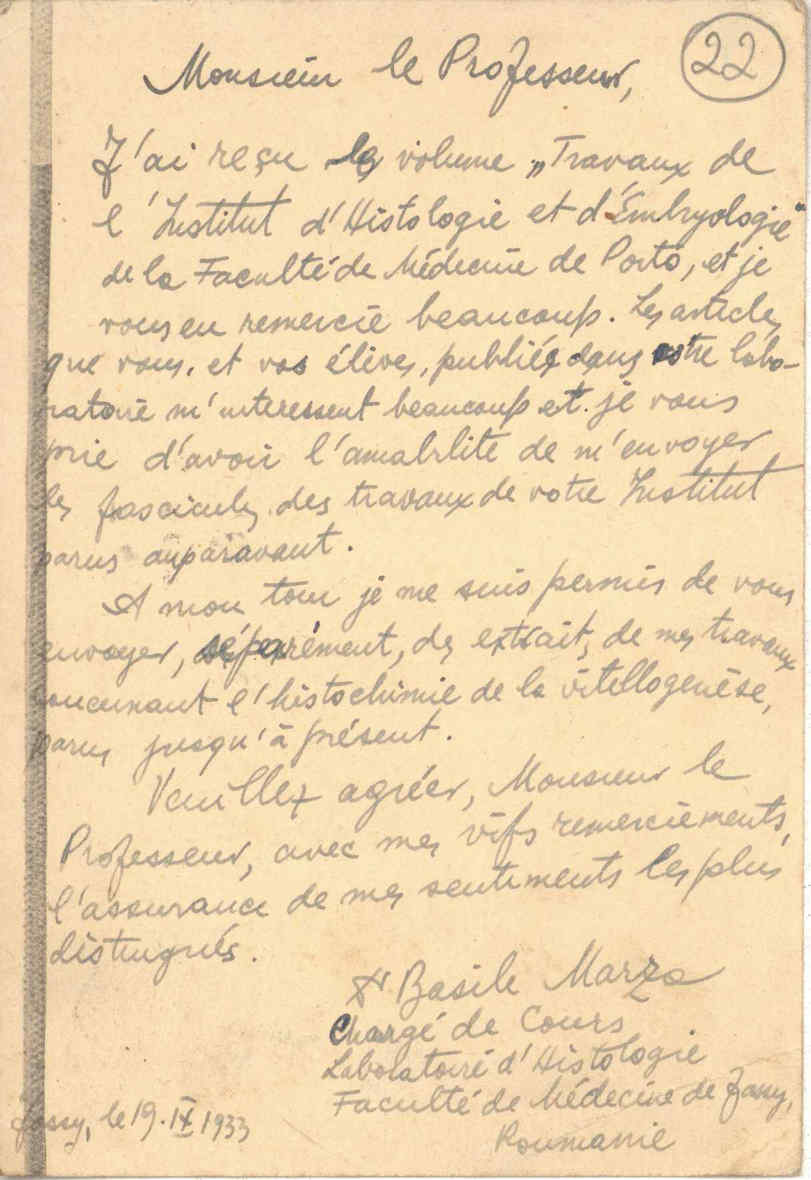 22
Monsieur le Professeur,
J'ai reçu le volume „Travaux de
l'Institut d'Histologie et d'Embryologie"
de la Faculté de Médecine de Porto, et je
vous en remercie beaucoup. Les articles
que vous, et vos élèves, publiéz dans votre labo-
ratoire m'interessent beaucoup et je vous
prie d'avoir l'amabilité de m'envoyer
les fascicules des travaux de votre Institut
parus auparavant.
A mon tour je me suis permis de vous
envoyer, séparément, des extraits de mes travaux
concernant l'histochimie de la vitellogenèse,
parus jusqu'à présent.
Veuillez agréer, Monsieur le
Professeur, avec mes vifs remerciements,
l'assurance de mes sentiments les plus
distingués.
Dr Basile Marza
Chargé de Cours
Laboratoire d'Histologie
Faculté de Médecine de Jassy,
Roumanie
Jassy, le 19.IX 1933